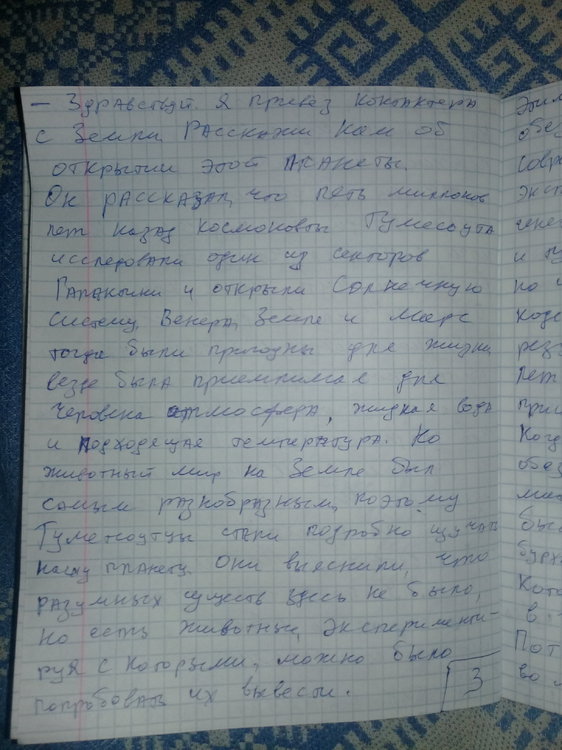 — Здравствуй. Я привёз контактера
с Земли. Расскажи нам об
открытии этой планеты.
Он рассказал, что пять миллионов
лет назад космонавты Тумесоута
исследовали один из секторов
Галактики и открыли Солнечную
систему. Венера, Земля и Марс
тогда были пригодны для жизни
везде была приемлимая для
человека атмосфера, жидкая вода
и подходящая температура. Но
животный мир на Земле был
самым разнобразным, поэтому
Тумесоутцы стали подробно изучать
нашу планету. Они выяснили, что
разумных существ здесь не было,
но есть животные, эксперименти-
руя с которыми, можно было
попробовать их вывести.
3